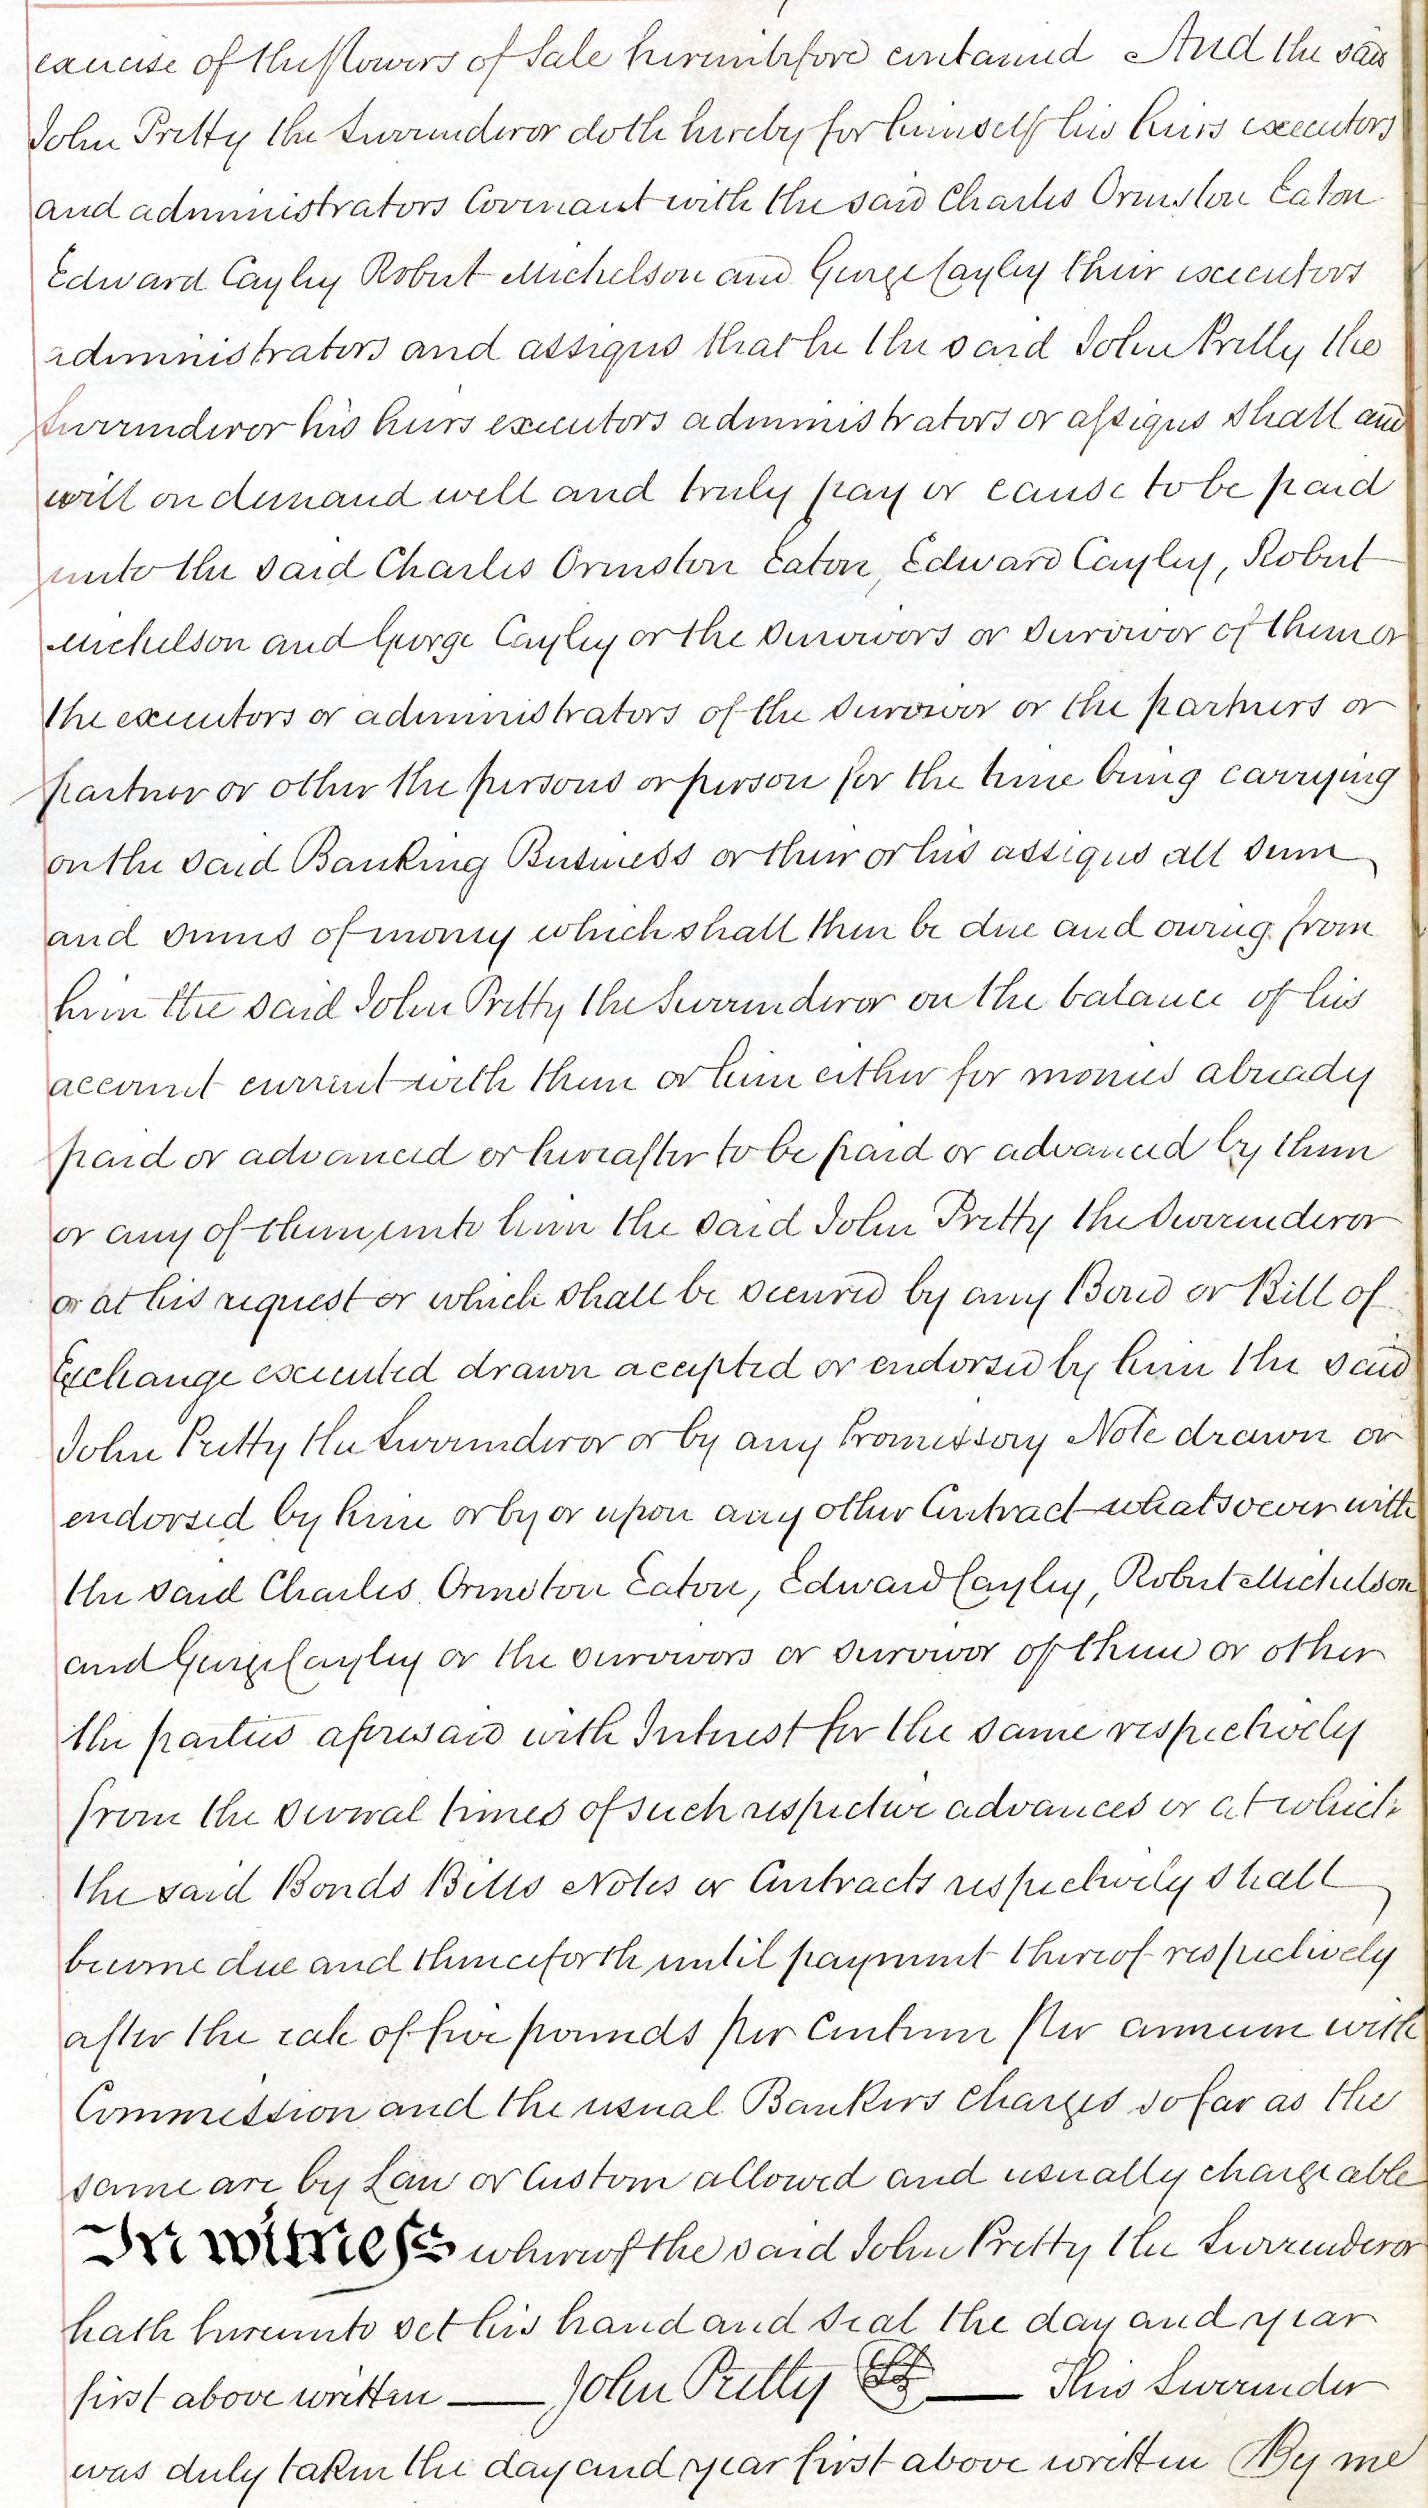 exercise of the powers of Sale hereinbefore contained And the said
John Pretty the Surrenderor doth hereby for himself his heirs executors
and administrators Covenant with the said Charles Ormston Eaton
Edward Cayley Robert Michelson and George Cayley their executors
administrators and assigns that he the said John Pretty the
Surrenderor his heirs executors administrators or assigns shall and
will on demand well and truly pay or cause to be paid
unto the said Charles Ormston Eaton, Edward Cayley, Robert
Michelson and George Cayley or the survivors or survivor of them or
the executors or administrators of the survivor or the partners or
partner or other the persons or person for the time being carrying
on the said Banking Business or their or his assigns all sum
and sums of money which shall then be due and owing from
him the said John Pretty the Surrenderor on the balance of his
account current with them or him either for monies already
paid or advanced or hereafter to be paid or advanced by them
or any of them unto him the said John Pretty the Surrenderor
or at his request or which shall be secured by any Bond or Bill of
Exchange executed drawn accepted or endorsed by him the said
John Pretty the Surrenderor or by any Promissory Note drawn or
endorsed by him or by or upon any other Contract whatsoever with
the said Charles Ormston Eaton, Edward Cayley, Robert Michelson
and George Cayley or the survivors or survivor of them or other
the parties aforesaid with Interest for the same respectively
from the several times of such respective advances or at which
the said Bonds Bills Notes or Contracts respectively shall
become due and thenceforth until payment thereof respectively
after the rate of five pounds per Centum per annum with
Commission and the usual Bankers charges so far as the
same are by Law or Custom allowed and usually chargeable
In witness whereof the said John Pretty the Surrenderor
hath hereunto set his hand and seal the day and year
first above written — John Pretty LS — This Surrender
was duly taken the day and year first above written By me